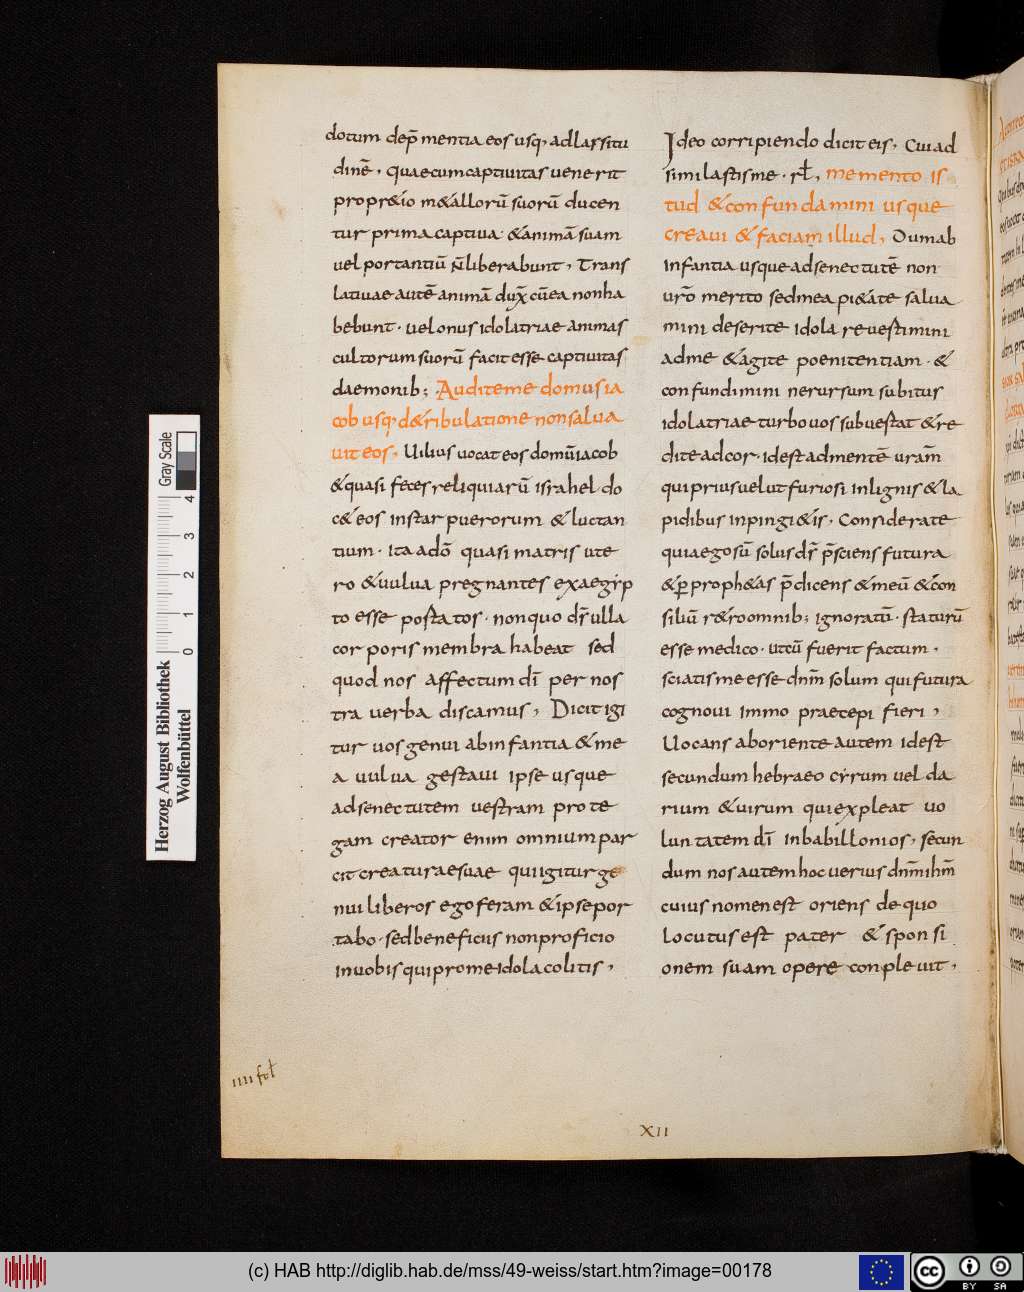 dotum dep̄mentia eos usq; ad lassitu
dinē, quaecumcaptiuitas uenerit
propr&io m&allorū suorū ducen
tur prima captiua· &animā suam
uel portantiū n̄liberabunt, Trans
latiuae autē animā dux̄ cūea nonha
bebunt· uelonus idolatriae animas
cultorumsuorū facit esse captiuitas
daemonib; Auditeme domusia
cob usq; d&ribulatione nonsalua
uit eos, Uilius uocat eos domūiacob
&quasi feces reliquiarū israhel· do
c& eos instar puerorum & luctan
tium· ita adō quasi matris ute
ro &uulua pregnantes exaegỳp
to esse postatos· nonquo dr̄ ulla
corporis membra habeat sed
quod nos affectum dī per nos
tra uerba discamus, Dicit igi
tur uos genui abinfantia &me
a uulua gestaui ipse usque
adsenectutem uestram prote
gam creator enim omnium par
cit creaturaesuae quiigitur ge
nui liberos ego feram &ipse por
tabo· sedbeneficiis nonproficio
inuobis qui prome idola colitis,
Ideo corripiendo dicit eis, Cui ad
similastisme· rł, memento is
tud &confundamini usque
creaui & faciam illud, Dumab
infantia usque adsenectutē non
urō merito sedmea pi&ate salua
mini deserite idola reuestimini
adme &agite poenitentiam· &
confundimini nerursum subitus
idolatriae turbo uos subuestat &re
dite adcor· idest admentē urām̄
qui prius uelut furiosi inlignis & la
pidibus inpingi&is· Considerate
quia ego sū solus dr̄ p̄sciens futura
&ꝑ proph&as p̄dicens & meū &con
siliū r&roomnib; ignoratū· staturū
esse medico· utcū fuerit factum,
sciatis me esse dnm̄ solum qui futura
cognoui immo praecepi fieri,
Uocans aboriente autem idest
secundum hebraeo cỳrum uel da
rium &uirum qui expleat uo
luntatem dī inbabillonios, secun
dum nos autem hoc uerius dnm̄ ihm̄
cuius nomen est oriens de quo
locutus est pater & sponsi
onem suam opere conpleuit,
iiii foł
XII
Gray Scale
0 1 2 3 4
Herzog August Bibliothek
Wolfenbüttel
(c) HAB http://diglib.hab.de/mss/49-weiss/start.htm?image=00178
cc BY SA